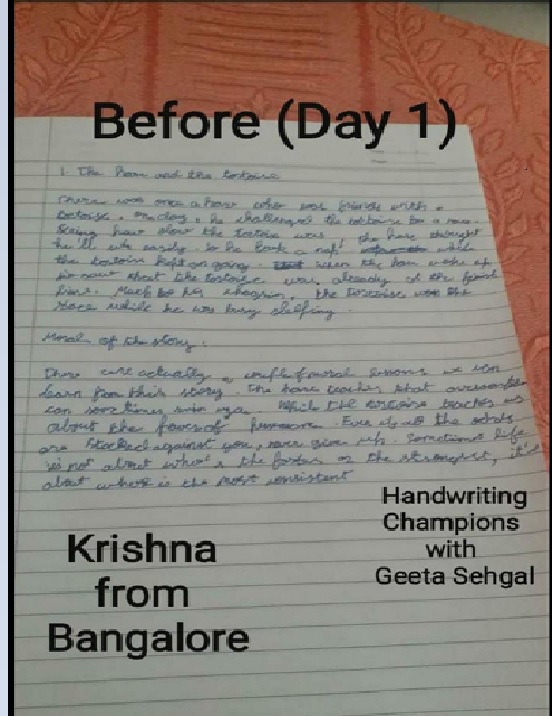 Before (Day 1)
1. The Hare and the tortoise
There was once a hare who was friends with a
tortoise. One day, he challenged the tortoise to a race.
Seeing how slow the tortoise was the hare thought
he'll win easily. So he took a nap while
the tortoise kept on going. when the hare woke up
he saw that the tortoise was already at the finish
line. Much to his chagrin, the tortoise won the
race while he was busy sleeping.
Moral of the story:
There are actually a couple of moral lessons we can
learn from this story. The hare teaches that
can sometimes ruin you. While the tortoise teaches us
about the power of Even if all the odds
are stacked against you, never give up. Sometimes life
is not about who's the fastest or the strongest, it's
about who is the most consistent
Handwriting
Champions
with
Geeta Sehgal
Krishna
from
Bangalore